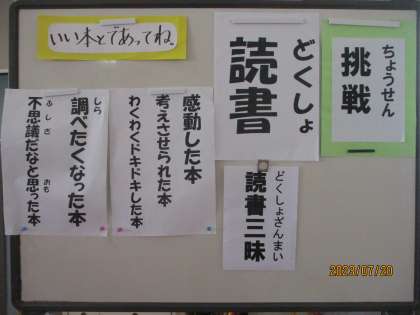 いい本とであってね。
ちょうせん
挑戦
どくしょ
読書
どくしょざんまい
読書三昧
感動した本
考えさせられた本
わくわくドキドキした本
しら
調べたくなった本
ふしぎ おも
不思議だなと思った本
2023/07/20